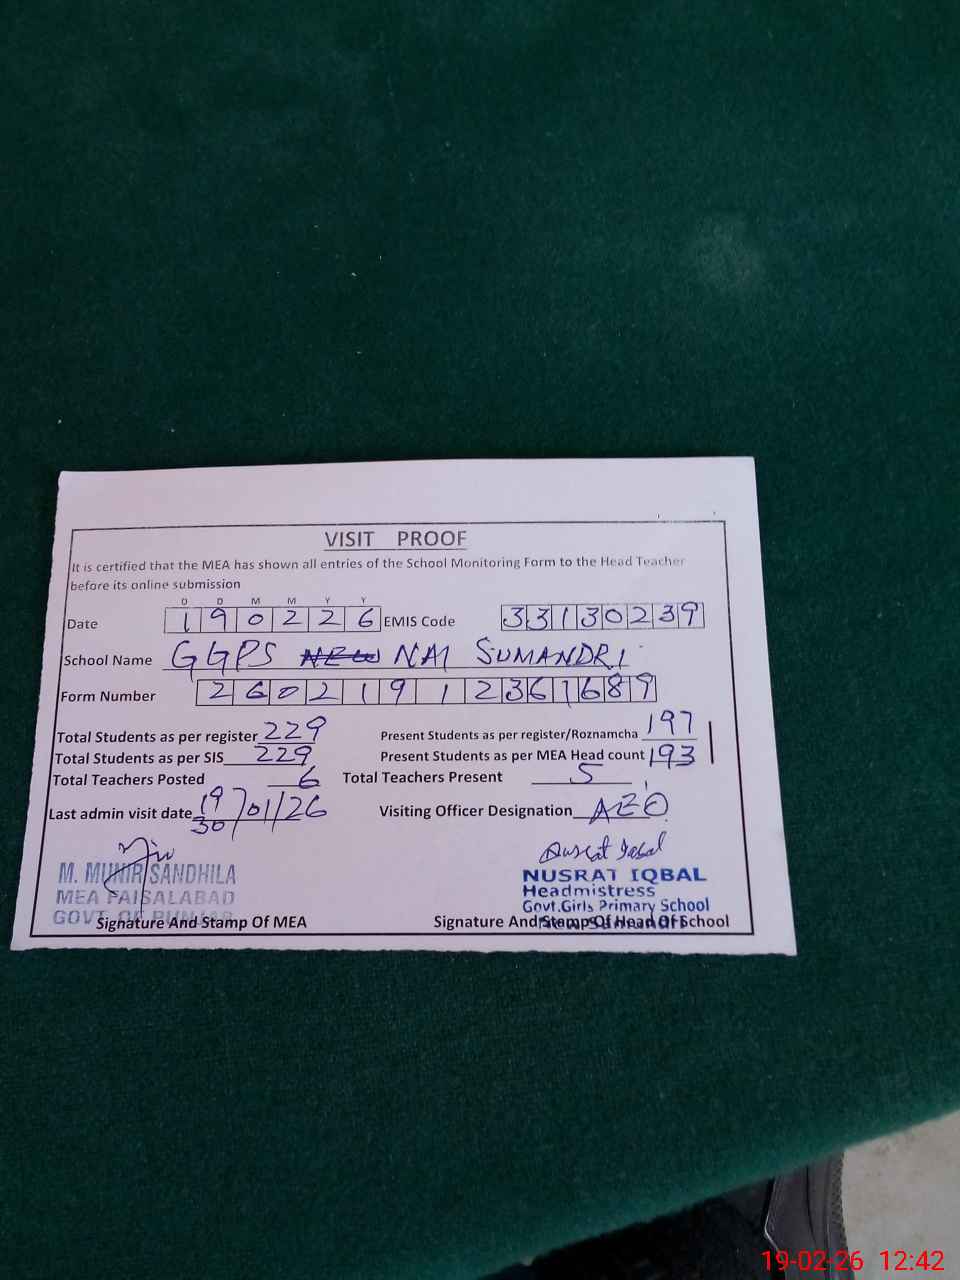 VISIT PROOF
It is certified that the MEA has shown all entries of the School Monitoring Form to the Head Teacher
before its online submission
D D M M Y Y
Date 1 9 0 2 2 6 EMIS Code 3 3 1 3 0 2 3 9
School Name GGPS NEW NAI SUMANDRI
Form Number 2 6 0 2 1 9 1 2 3 6 1 6 8 9
Total Students as per register 229 Present Students as per register/Roznamcha 197
Total Students as per SIS 229 Present Students as per MEA Head count 193
Total Teachers Posted 6 Total Teachers Present 5
Last admin visit date 19/01/26 Visiting Officer Designation AEO
30
Nusrat Iqbal
M. MUNIR SANDHILA NUSRAT IQBAL
MEA FAISALABAD Headmistress
GOVT. OF PUNJAB Govt.Girls Primary School
Signature And Stamp Of MEA Signature And Stamp Of Head Of School
19-02-26 12:42